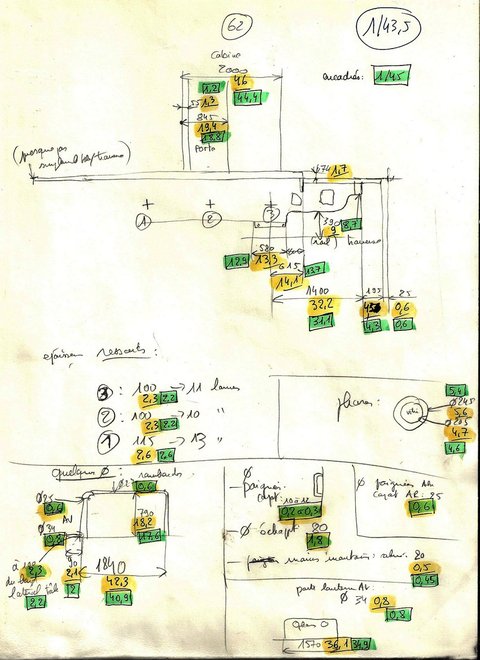 62
1/43,5
Cabine
2000
46
44,4
encadrés: 1/45
1,2
1,3
845
19,4
18,8
Porte
(presque pas
674 1,7
390
9 8,7
traverse
1 2 3
580
12,9 13,3
615
14,1 13,7
1400 195 25
32,2 0,6
31,1 4,3 0,6
épaisseur ressorts:
3: 100 → 11 lames
2,3 2,2
2: 100 → 10 "
2,3 2,2
1: 115 → 13 "
2,6 2,6
phares:
5,4
Ø 245
5,6
Ø 205
4,7
4,6
quelques Ø: rambardes
0,6
Ø 25
0,6
AV
Ø 34
0,8
790
18,2
17,6
à 100
2,3
2,2
90
2,1
2
1840
42,3
40,9
Ø
poignées
capot: 10 à 12
0,2 à 0,3
Ø échapt: 80
1,8
Ø poignées AV
capot AR: 25
0,6
mains montoires: 20
0,5
0,45
porte lanternes AV:
Ø 34 0,8
0,8
1570 36,1 34,9